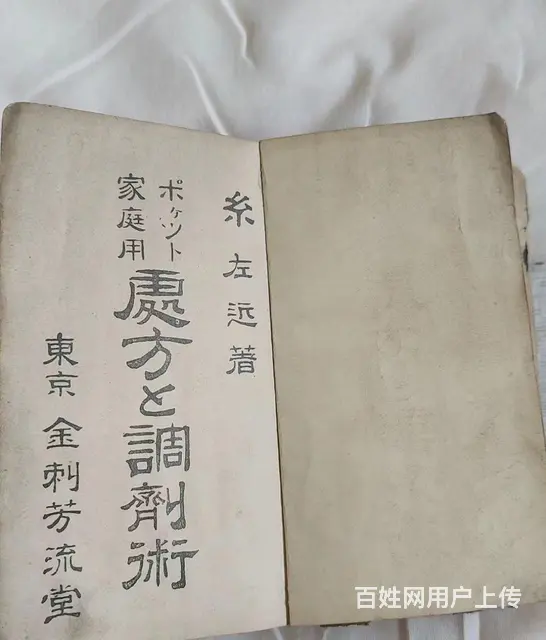 糸左近著
ポケット
家庭用
處方と調劑術
東京 金刺芳流堂
百姓网用户上传